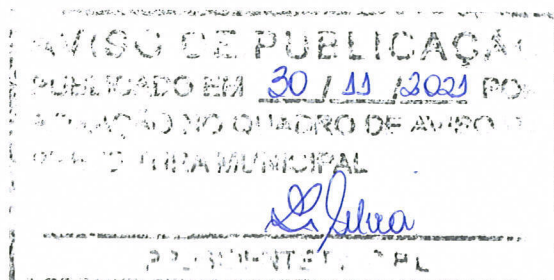 AVISO DE PUBLICAÇÃO
PUBLICADO EM 30 / 11 / 2021 POR
NO QUADRO DE AVISO
MUNICIPAL
Silva
PRESIDENTE CPL